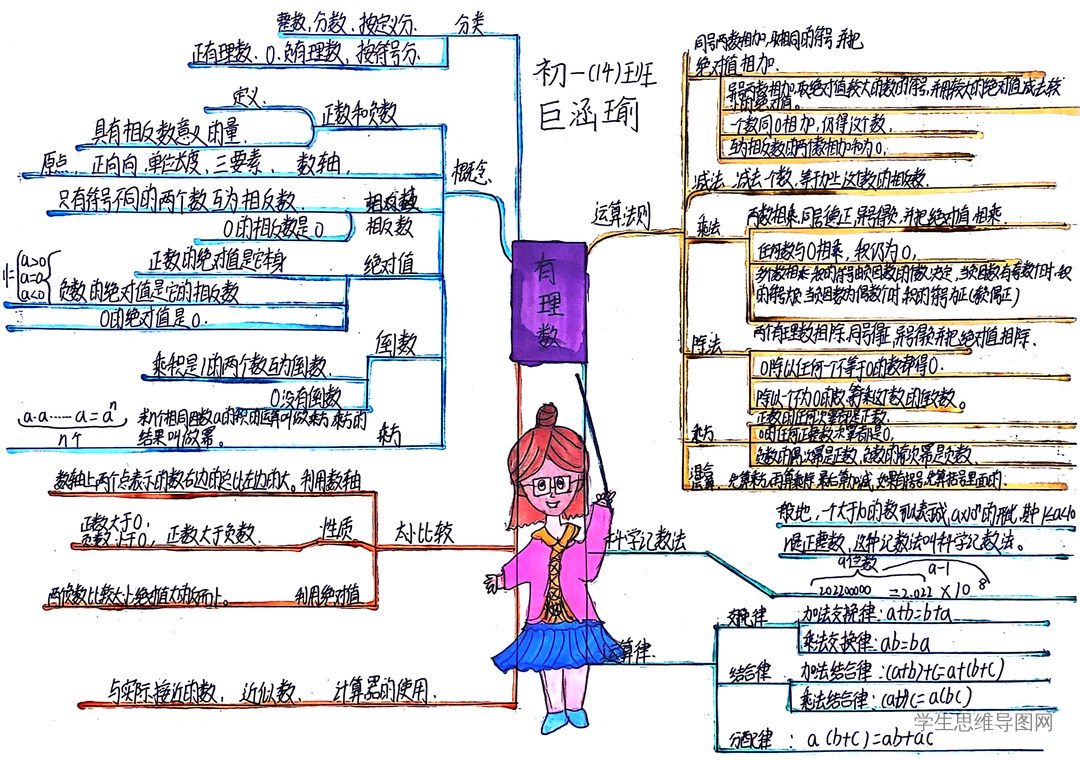 整数,分数、按定义分.
分类
正有理数、0.负有理数,按符号分
定义
正数和负数
具有相反数意义的量.
原点、正向向,单位长度、三要素、数轴,
概念
只有符号不同的两个数互为相反数.
0的相反数是0
相反数
正数的绝对值是它本身
绝对值
a>0
a=0
a<0
负数的绝对值是它的相反数
0的绝对值是0.
倒数
乘积是1的两个数互为倒数.
0没有倒数
a·a……a=aⁿ,
n个
求n个相同因数a的积的运算叫做乘方,乘方的
结果叫做幂。
乘方
数轴上两个点表示的数右边的总比左边的大。利用数轴
正数大于0,
负数小于0,正数大于负数.
性质
大小比较
两个负数比较大小绝对值大的反而小。
利用绝对值
与实际接近的数,近似数、计算器的使用.
初一(14)班
巨涵瑜
有理数
运算法则
同号两数相加,取相同的符号,并把
绝对值相加.
异号两数相加取绝对值较大的数的符号,并用较大的绝对值减去较
小的绝对值。
一个数同0相加,仍得这个数,
互为相反数的两个数相加和为0.
减法 减去一个数,等于加上这个数的相反数.
乘法
两数相乘,同号得正,异号得负,并把绝对值相乘.
任何数与0相乘,积仍为0,
的符号为负,当负因数为偶数个时,积的符号为正(奇负偶正)
除法
两个有理数相除,同号得正,异号得负并把绝对值相除.
0除以任何一个不等于0的数都得0.
除以一个不为0的数,等于乘这个数的倒数。
乘方
正数的任何次幂都是正数.
0的任何正整数次幂都是0,
负数的偶次幂是正数,负数的奇次幂是负数
混合
先算乘方,再算乘除,最后算加减,如果有括号,先算括号里面的.
科学记数法
n是正整数,这种记数法叫科学记数法。
a位数
a-1
202200000 =2.022×10⁸
运算律.
交换律
加法交换律:a+b=b+a
乘法交换律:ab=ba
结合律
加法结合律:(a+b)+c=a+(b+c)
乘法结合律:(ab)c=a(bc)
分配律:a(b+c)=ab+ac
学生思维导图网